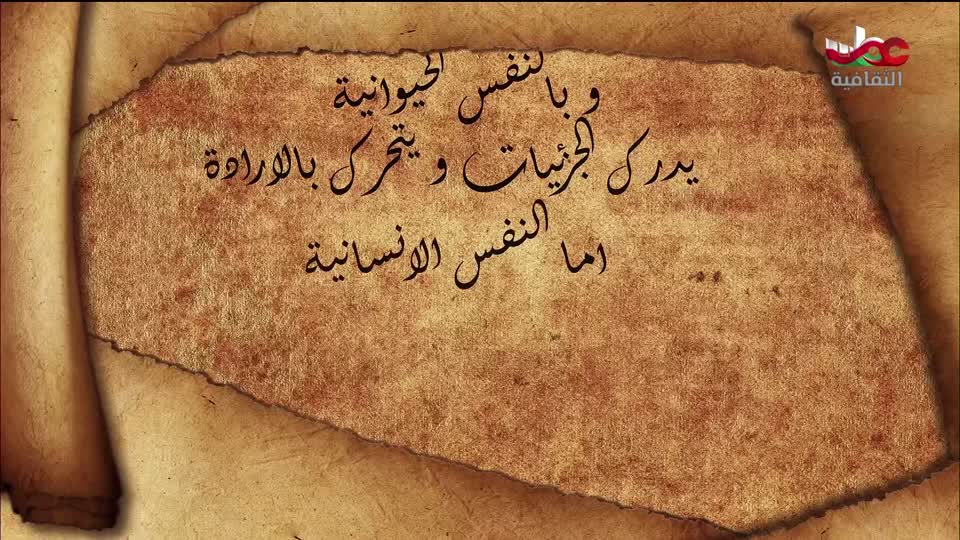 عمان
الثقافية
و بالنفس الحيوانية
يدرك الجزئيات و يتحرك بالارادة
اما النفس الانسانية